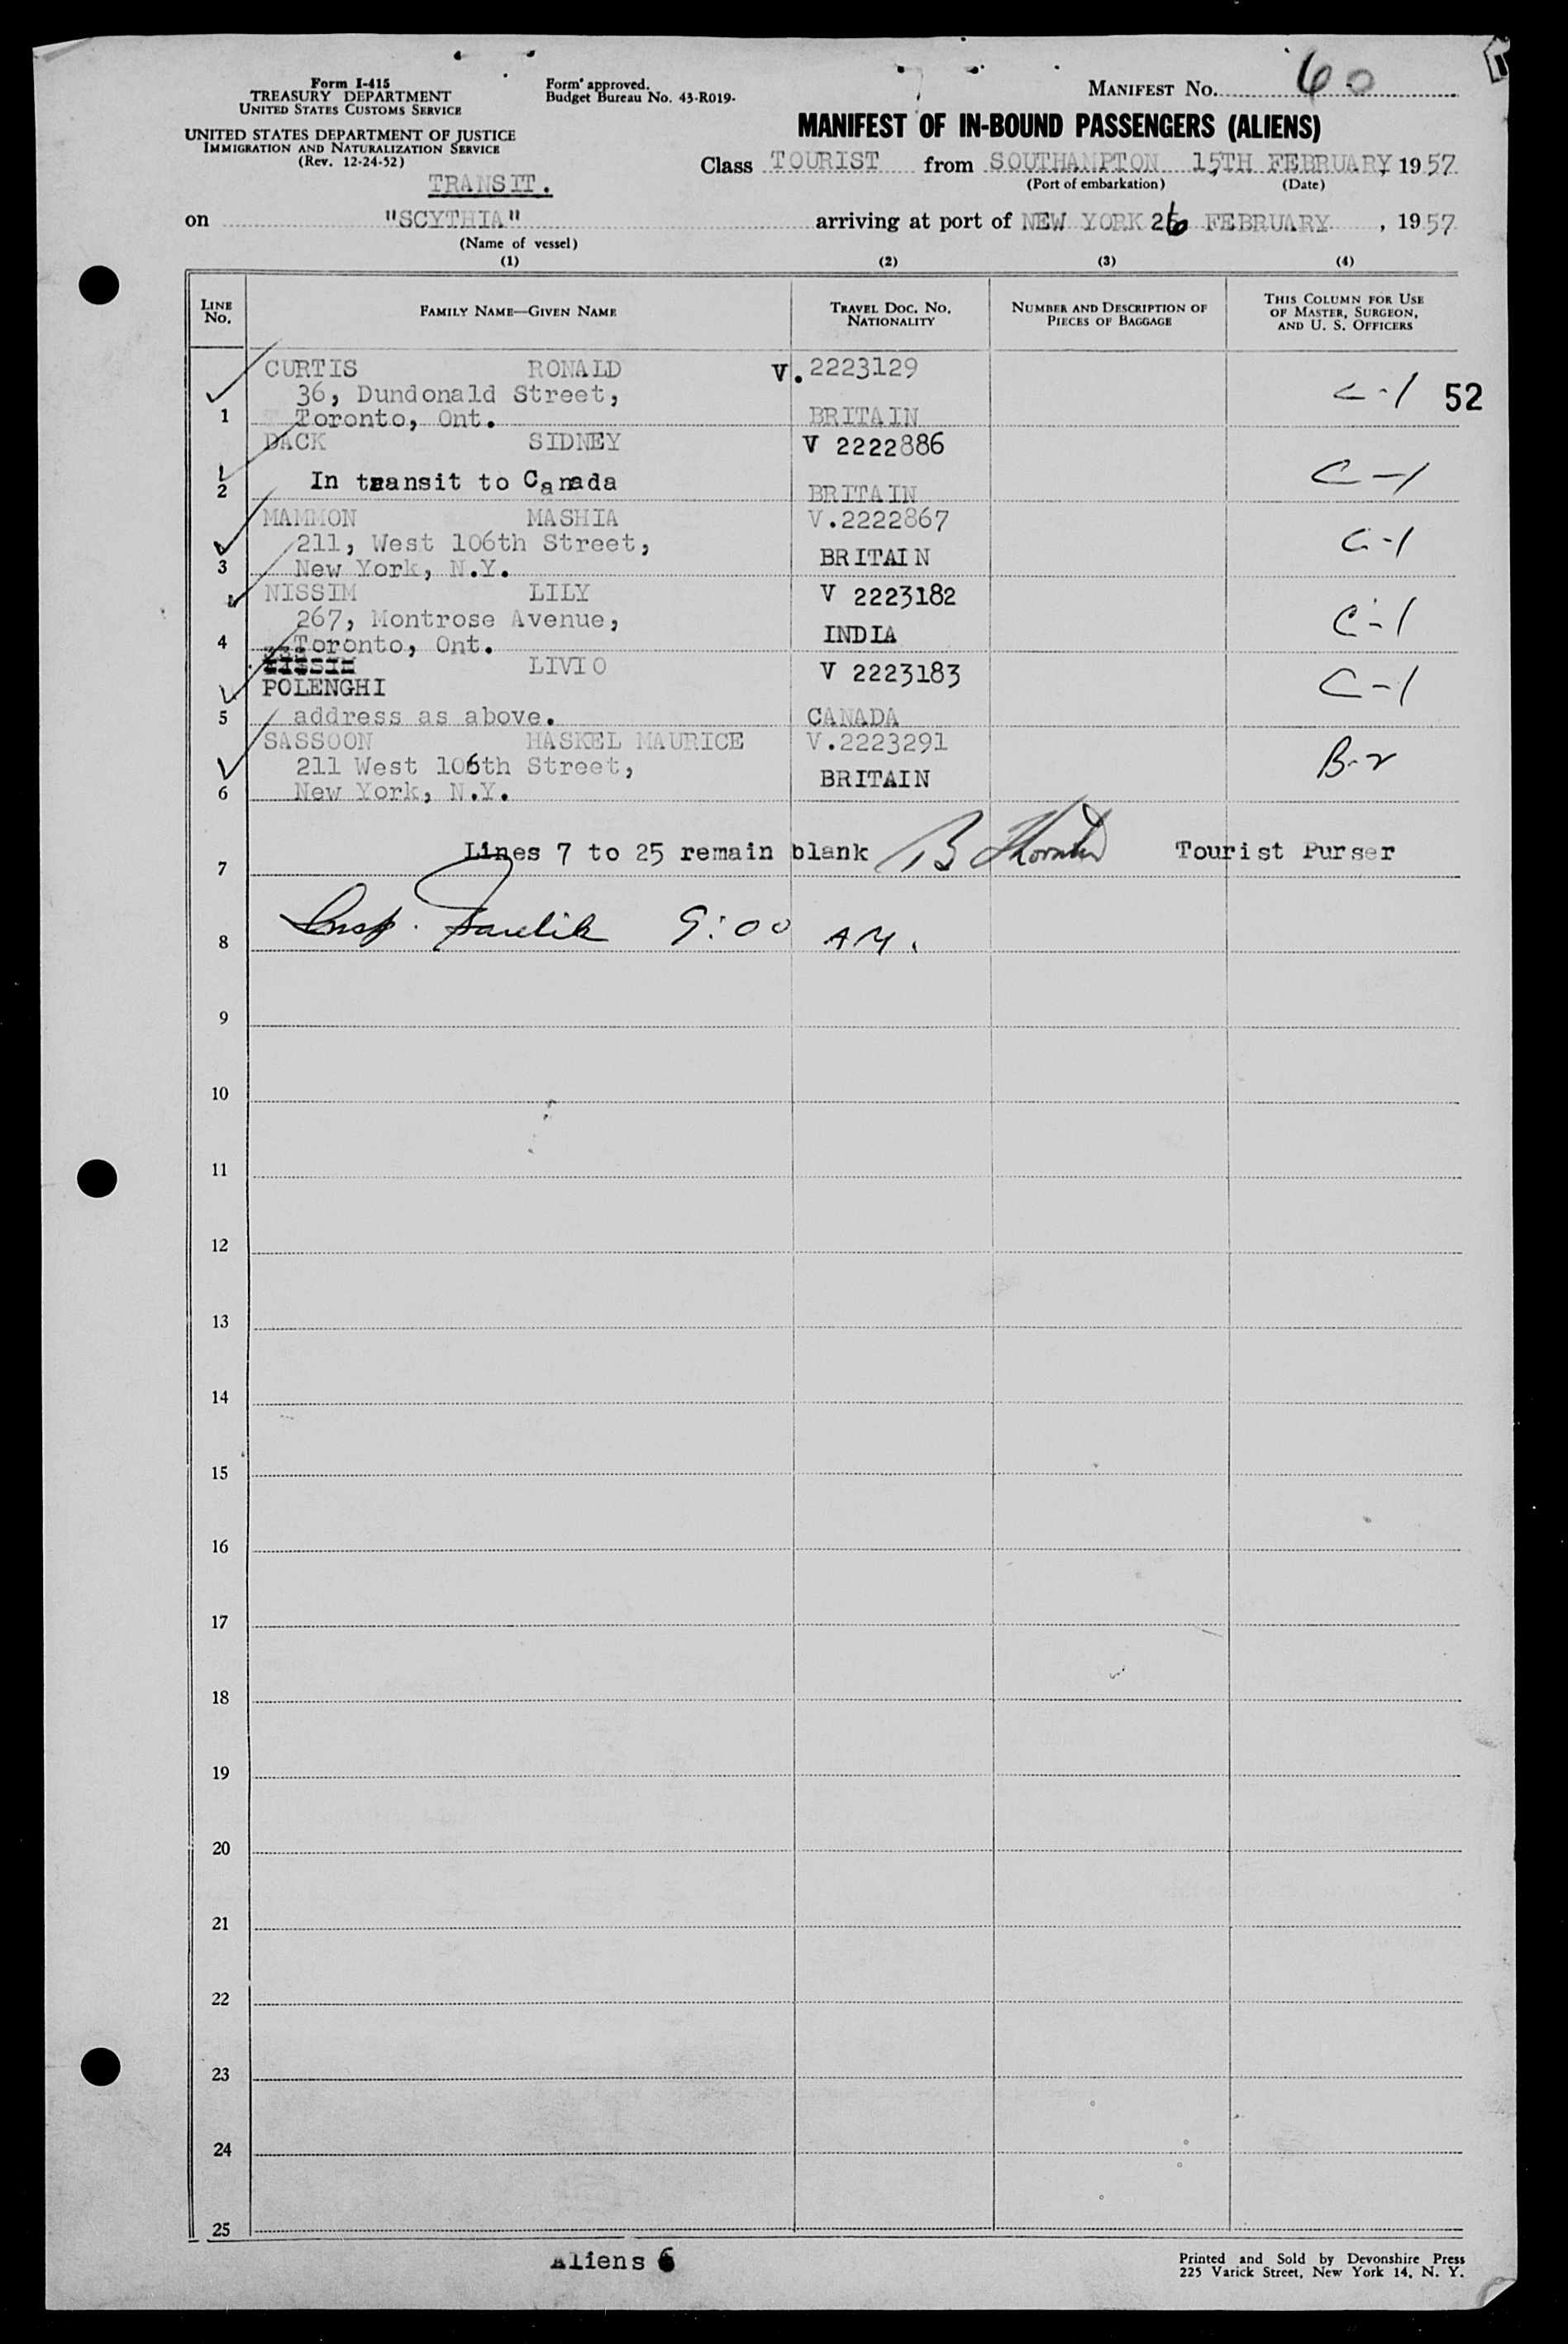 Form I-415
TREASURY DEPARTMENT
UNITED STATES CUSTOMS SERVICE
UNITED STATES DEPARTMENT OF JUSTICE
IMMIGRATION AND NATURALIZATION SERVICE
(Rev. 12-24-52)
Form approved.
Budget Bureau No. 43-R019-
MANIFEST NO. 60
MANIFEST OF IN-BOUND PASSENGERS (ALIENS)
Class TOURIST from SOUTHAMPTON 15TH FEBRUARY, 1957
(Port of embarkation) (Date)
TRANSIT.
on "SCYTHIA" arriving at port of NEW YORK 26 FEBRUARY, 1957
(Name of vessel)
(1) (2) (3) (4)
LINE NO.
FAMILY NAME—GIVEN NAME
TRAVEL DOC. NO. NATIONALITY
NUMBER AND DESCRIPTION OF PIECES OF BAGGAGE
THIS COLUMN FOR USE OF MASTER, SURGEON, AND U. S. OFFICERS
CURTIS RONALD V.2223129
36, Dundonald Street, C-1 52
1 Toronto, Ont. BRITAIN
DACK SIDNEY V 2222886
In transit to Canada C-1
2 BRITAIN
MAMMON MASHIA V.2222867
211, West 106th Street, C-1
3 New York, N.Y. BRITAIN
NISSIM LILY V 2223182
267, Montrose Avenue, C-1
4 Toronto, Ont. INDIA
NISSIM LIVIO V 2223183
POLENGHI C-1
5 address as above. CANADA
SASSOON HASKEL MAURICE V.2223291
211 West 106th Street, B-2
6 New York, N.Y. BRITAIN
7 Lines 7 to 25 remain blank B Tourist Purser
8 Insp. 9:00 AM.
9
10
11
12
13
14
15
16
17
18
19
20
21
22
23
24
25
Aliens 6
Printed and Sold by Devonshire Press
225 Varick Street, New York 14, N. Y.